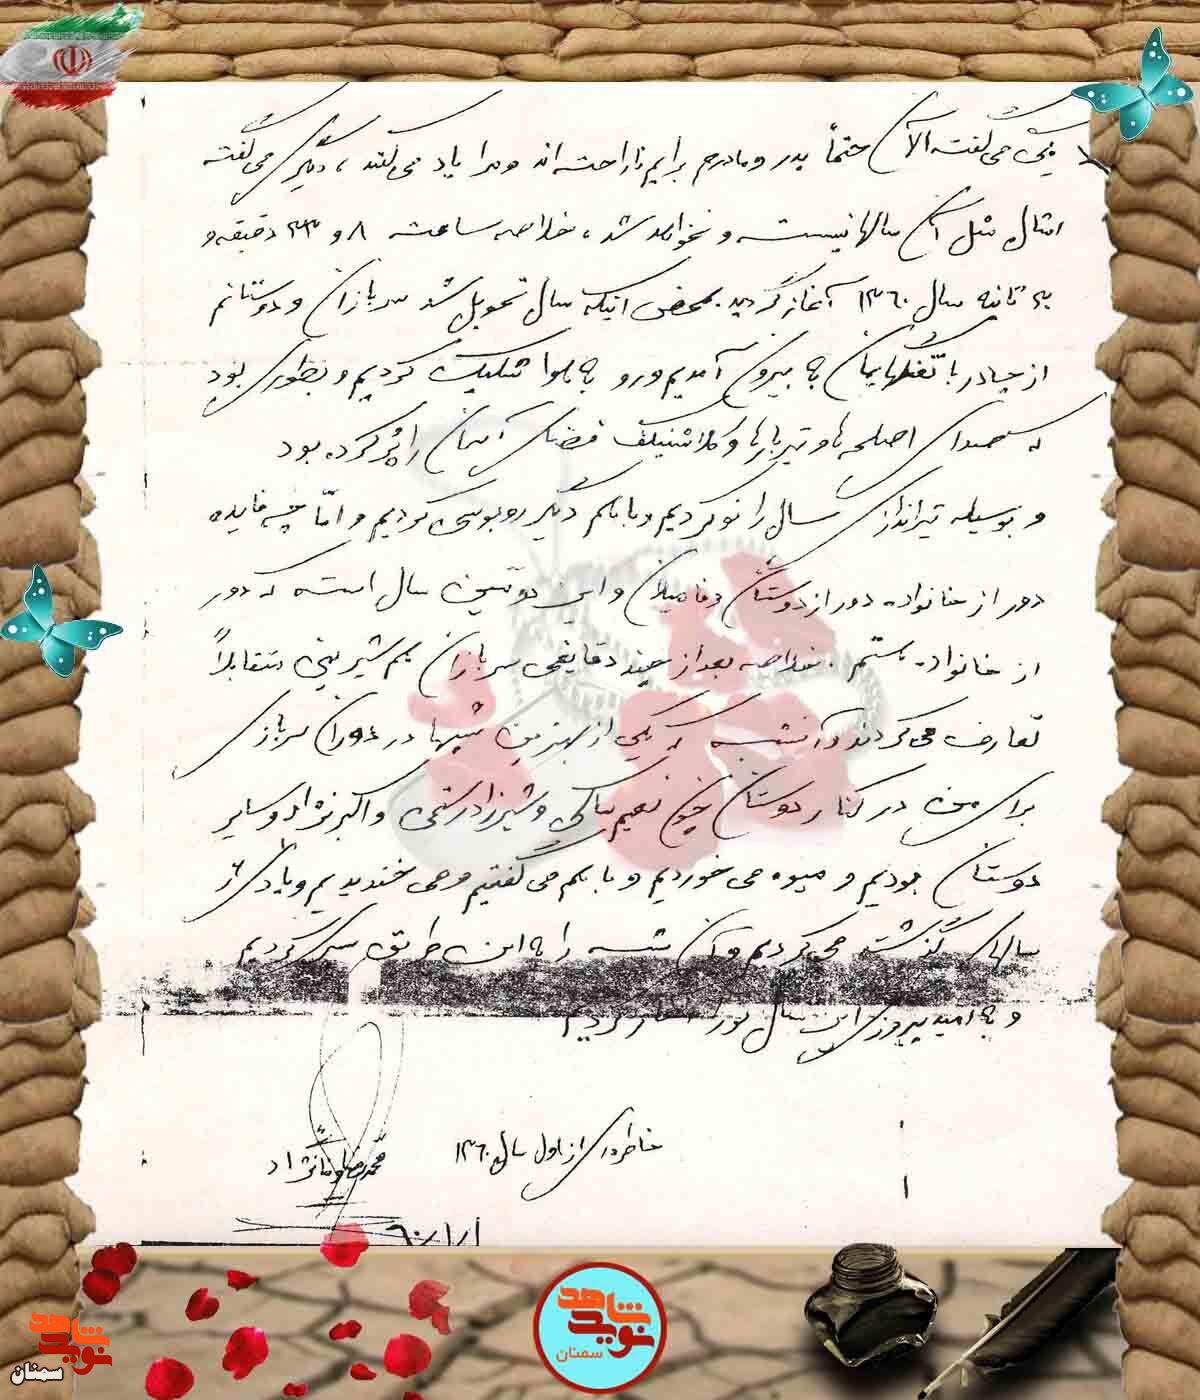 یکی می‌گفت الآن حتماً پدر و مادرم برایم ناراحت‌اند و مرا یاد می‌کنند، دیگری می‌گفت
امثال مثل آن سالها نیست و نخواهد شد، خلاصه ساعت ۸ و ۳۳ دقیقه و
ثانیه سال ۱۳۶۰ آغاز گردید. بمحض اینکه سال تحویل شد سربازان و دوستانم
از چادر با تفنگهایمان به بیرون آمدیم و رو به هوا شلیک کردیم و بطوری بود
که صدای اسلحه‌ها و تیربارها و کلاشنیکف فضای آسمان را پُر کرده بود
و بوسیله تیراندازی سال را نو کردیم و با هم دیگر روبوسی کردیم و امّا چه فایده
دور از خانواده دور از دوستان و فامیلان و این دومین سال است که دور
از خانواده هستم. خلاصه بعد از چند دقایقی سربازان هم شیرینی متقابلاً
تعارف می‌کردند و آنشب که یکی از بهترین شبها در دوران سربازی
برای من در کنار دوستان چون نعیم و شیرزاد رستمی و اکبرنژاد و سایر
دوستان بودیم و میوه می‌خوردیم و با هم می‌گفتیم و می‌خندیدیم و یادی از
سالهای گذشته می‌کردیم و آن شب را به این طریق سپری کردیم
و به امید پیروزی این سال نو را آغاز کردیم
خاطره‌ای از اول سال ۱۳۶۰
محمدرضا
۶۰/۱/۱
نوید شاهد
سمنان
نوید شاهد
سمنان